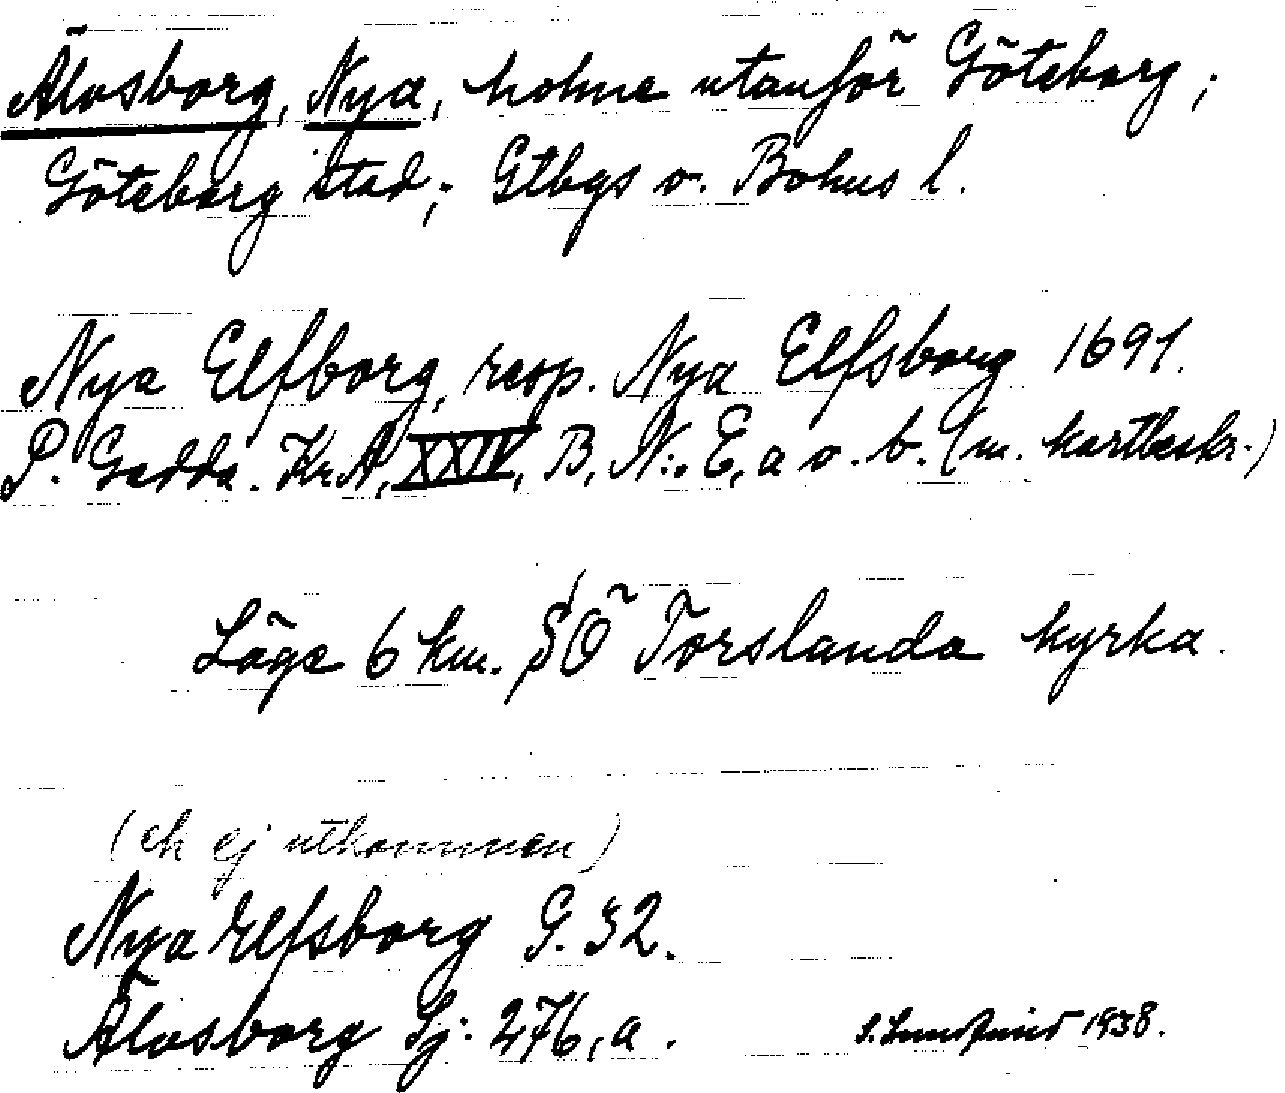 Älvsborg, Nya, holme utanför Göteborg;
Göteborg stad; Gtbgs o. Bohus l.
Nya Elfborg, resp. Nya Elfsborg 1691.
P. Gedda. Kr.A, XXIV, B, N:o E, a o. b. (m. kartbeskr.)
Läge 6 km. SÖ Torslanda kyrka.
(ek ej utkommen)
Nya Elfsborg G. 32.
Älvsborg Sj. 276, a.
1938.